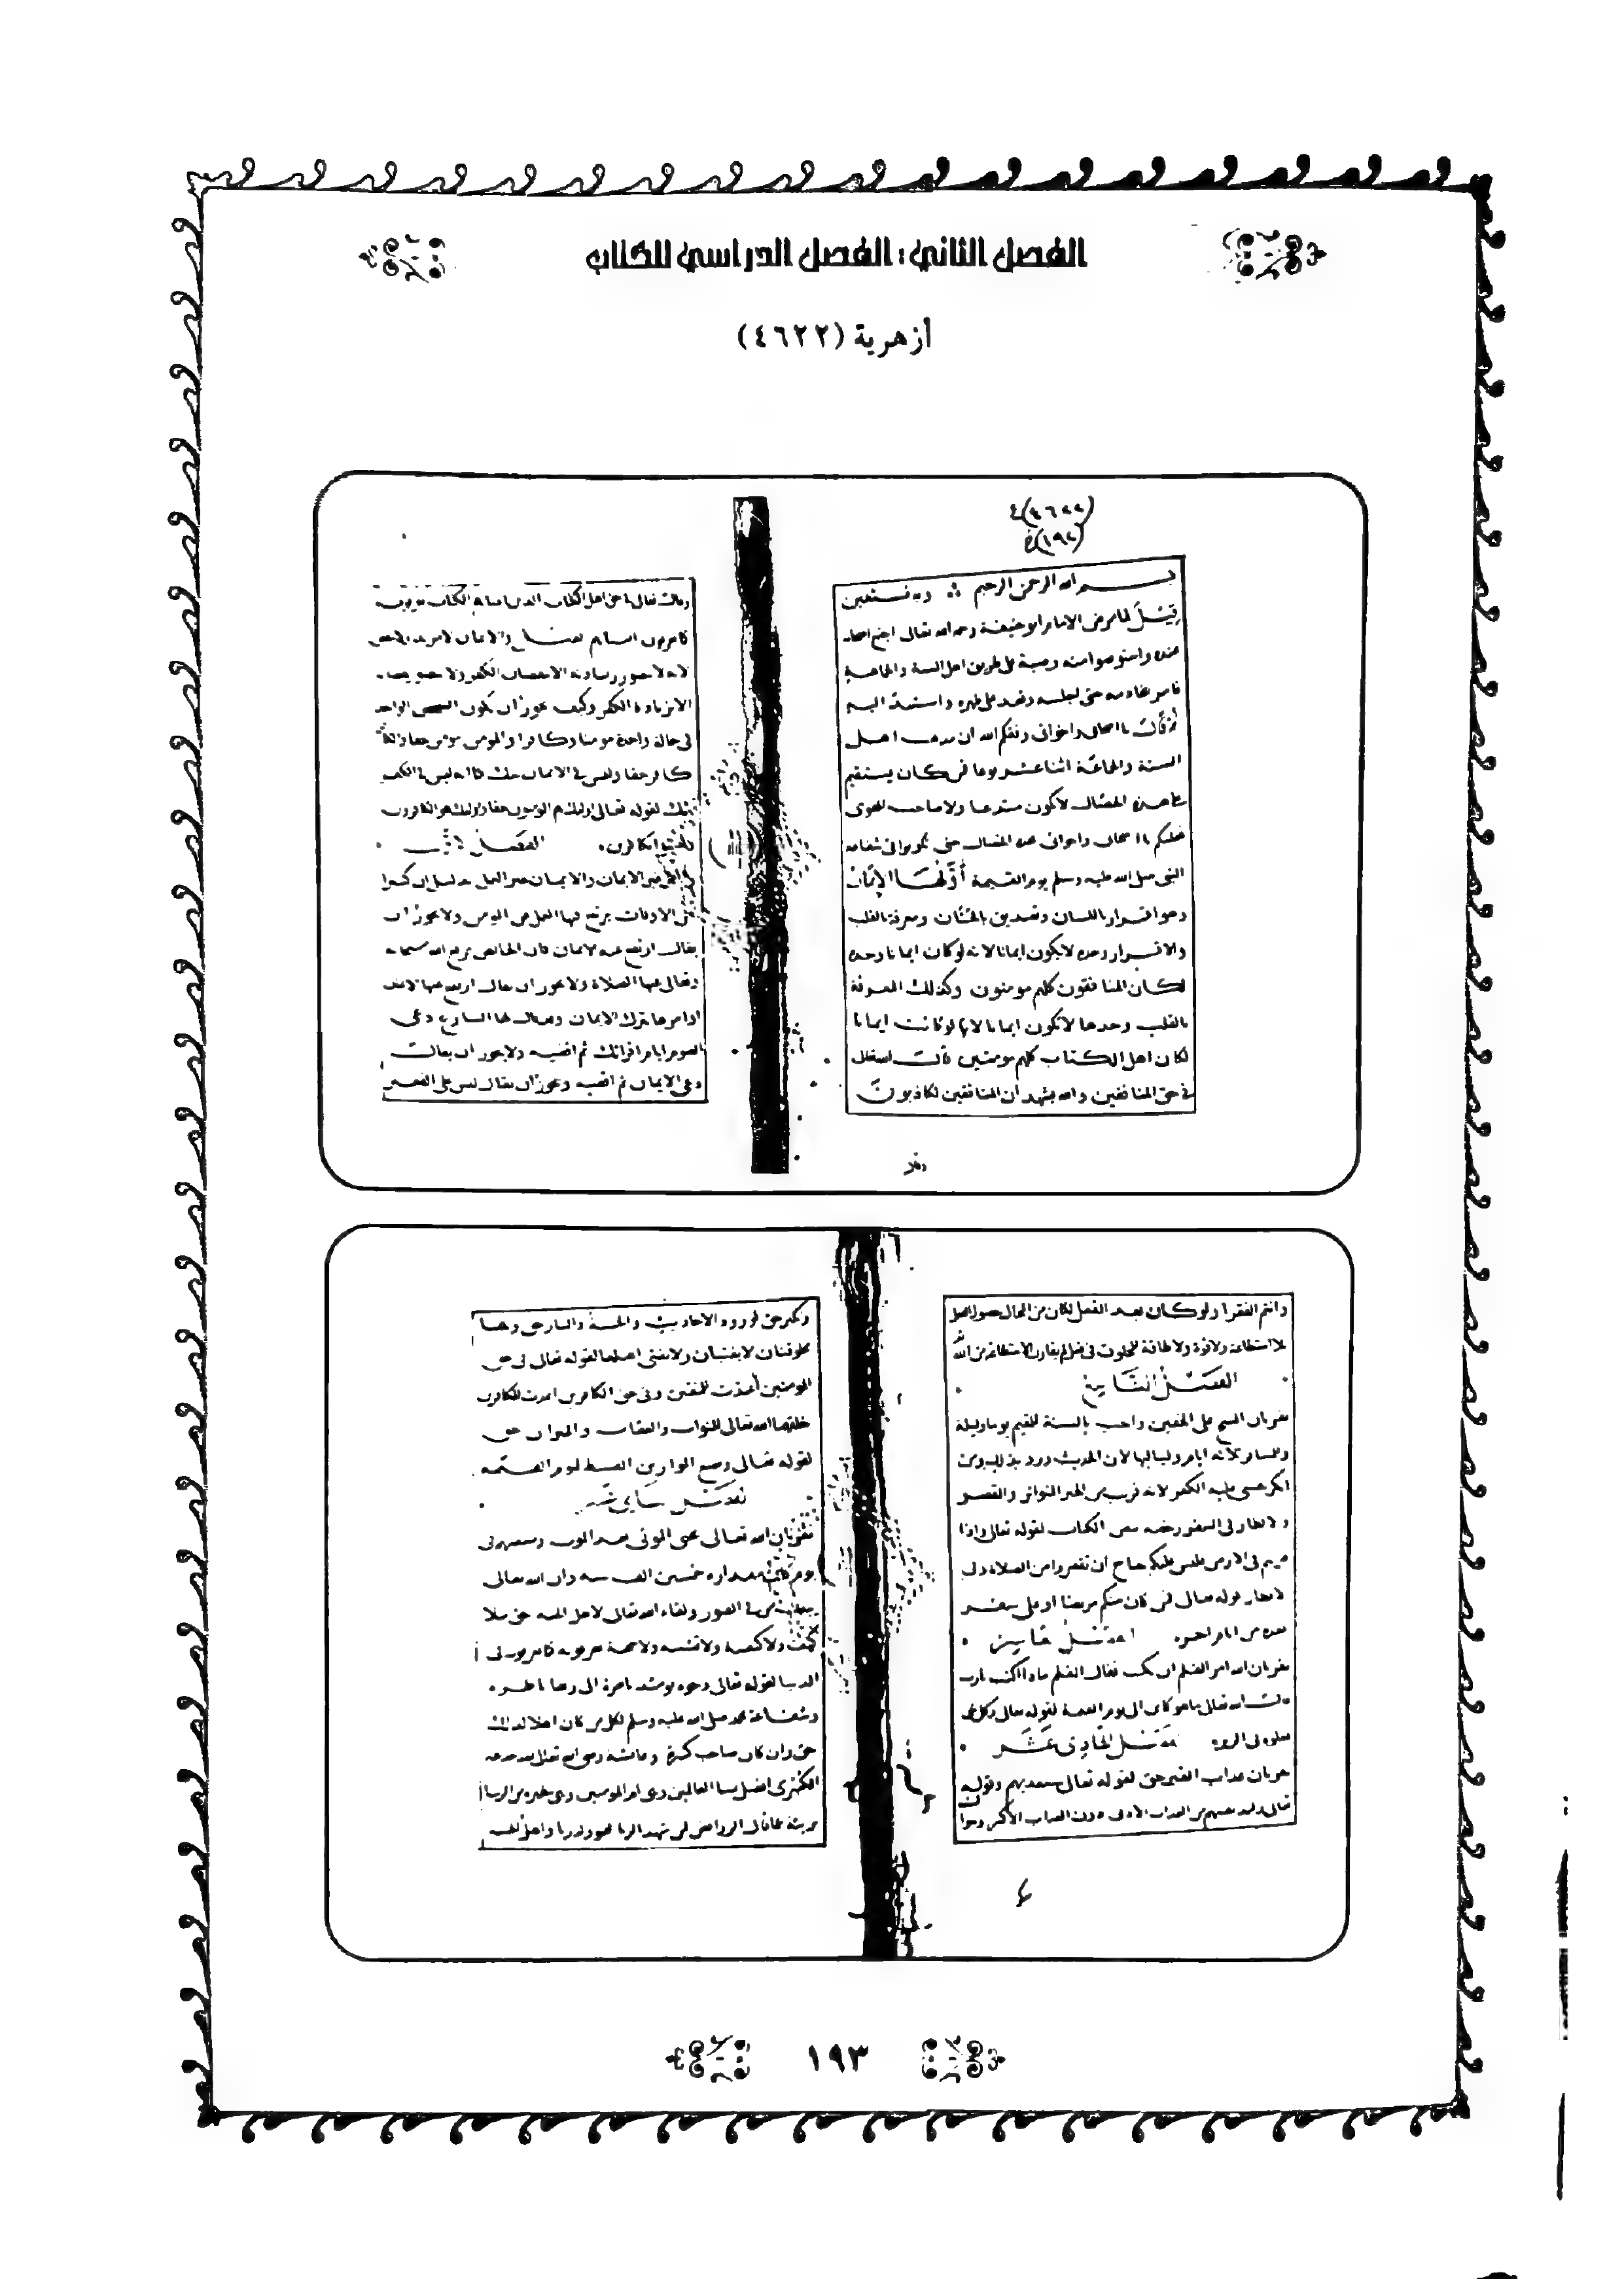 الفصل الثاني : الفصل الدراسي للكتاب
أزهرية (٤٦٢٢)
(٤٦٢٢)
(١٩٢)
بسم الله الرحمن الرحيم وبه نستعين
قيل لما مرض الامام ابو حنيفة رحمه الله تعالى اجتمع اصحابه
عنده واستوصوا منه وصية على طريق اهل السنة والجماعة
فامر خادمه حتى اجلسه وقعد على ظهره واستند اليه
ثم قال يا اصحابى واخوانى وفقكم الله ان مذهب اهل
السنة والجماعة اثنا عشر نوعا فمن كان يستقيم
على هذه الخصال لا يكون مبتدعا ولا صاحب الهوى
فعليكم يا اصحابى واخوانى هذه الخصال حتى تكونوا فى شفاعة
النبى صلى الله عليه وسلم يوم القيمة أولها الإيمان
وهو اقرار باللسان وتصديق بالجنان ومعرفة بالقلب
والاقرار وحده لا يكون ايمانا لانه لو كان ايمانا وحده
لكان المنافقون كلهم مومنون وكذلك المعرفة
بالقلب وحدها لا تكون ايمانا لانها لو كانت ايمانا
لكان اهل الكتاب كلهم مومنين قال الله تعالى
فى حق المنافقين والله يشهد ان المنافقين لكاذبون
وقال
وقال تعالى فى حق اهل الكتاب الذين اتيناهم الكتاب يعرفونه
كما يعرفون ابناءهم والايمان لا يزيد ولا ينقص
لانه لا يتصور زيادته الا بنقصان الكفر ولا يتصور نقصانه
الا بزيادة الكفر وكيف يجوز ان يكون الشخص الواحد
فى حالة واحدة مومنا وكافرا والمومن مومن حقا والكافر
كافر حقا وليس فى الايمان شك كما انه ليس فى الكفر
شك لقوله تعالى اولئك هم المومنون حقا واولئك هم الكافرون
الفصل الثانى
العمل غير الايمان والايمان غير العمل بدليل ان كثيرا
من الاوقات يرتفع فيها العمل من المومن ولا يجوز ان
يقال ارتفع عنه الايمان فان الحائض يرفع الله سبحانه
وتعالى عنها الصلاة ولا يجوز ان يقال ارتفع عنها الايمان
او امرها بترك الايمان وقال لها الشارع دعى
الصوم ايام اقرائك ثم اقضيه ولا يجوز ان يقال
دعى الايمان ثم اقضيه ويجوز ان يقال ليس على الفقير
وانتم الفقرا ولو كان بعد الفعل لكان من المحال حصول الفعل
بلا استطاعة ولا قوة ولا طاقة لمخلوق فى فعل لم يقارنه الاستطاعة من الله
الفصل التاسع
نقر بان المسح على الخفين واجب بالسنة للمقيم يوما وليلة
وللمسافر ثلاثة ايام ولياليها لان الحديث ورد هكذا فمن
انكر خشى عليه الكفر لانه قريب من الخبر المتواتر والقصر
والافطار فى السفر رخصة بنص الكتاب لقوله تعالى واذا
ضربتم فى الارض فليس عليكم جناح ان تقصروا من الصلاة وفى
الافطار قوله تعالى فمن كان منكم مريضا او على سفر
فعدة من ايام اخر الفصل العاشر
نقر بان الله امر القلم ان يكتب فقال القلم ماذا اكتب يا رب
قال الله تعالى ما هو كائن الى يوم القيمة لقوله تعالى وكل شى
فعلوه فى الزبر الفصل الحادى عشر
نقر بان عذاب القبر حق لقوله تعالى سنعذبهم وقوله
تعالى ولنذيقنهم من العذاب الادنى دون العذاب الاكبر وسوال
٤
ونكير حق لورود الاحاديث والجنة والنار حق وهما
مخلوقتان لا يفنيان ولا يفنى اهلهما لقوله تعالى فى حق
المومنين أعدت للمتقين وفى حق الكافرين اعدت للكافرين
خلقهما الله تعالى للثواب والعقاب والميزان حق
لقوله تعالى ونضع الموازين القسط ليوم القيمة
الفصل الثانى عشر
نقر بان الله تعالى يحيى الموتى بعد الموت ويبعثهم فى
يوم كان مقداره خمسين الف سنة وان الله تعالى
يبعث من فى القبور ولقاء الله تعالى لاهل الجنة حق بلا
كيف ولا تشبيه ولا جهة
الدنيا لقوله تعالى وجوه يومئذ ناضرة الى ربها ناظرة
وشفاعة محمد صلى الله عليه وسلم لكل من كان اهلا لذلك
حق وان كان صاحب كبيرة وعائشة رضى الله تعالى عنها بعد خديجة
الكبرى افضل نسا العالمين وهى ام المومنين وهى مطهرة من الزنا
بريئة عما قال الروافض فمن شهد الزنا فهو ولد زنا واهل الجنة
١٩٣